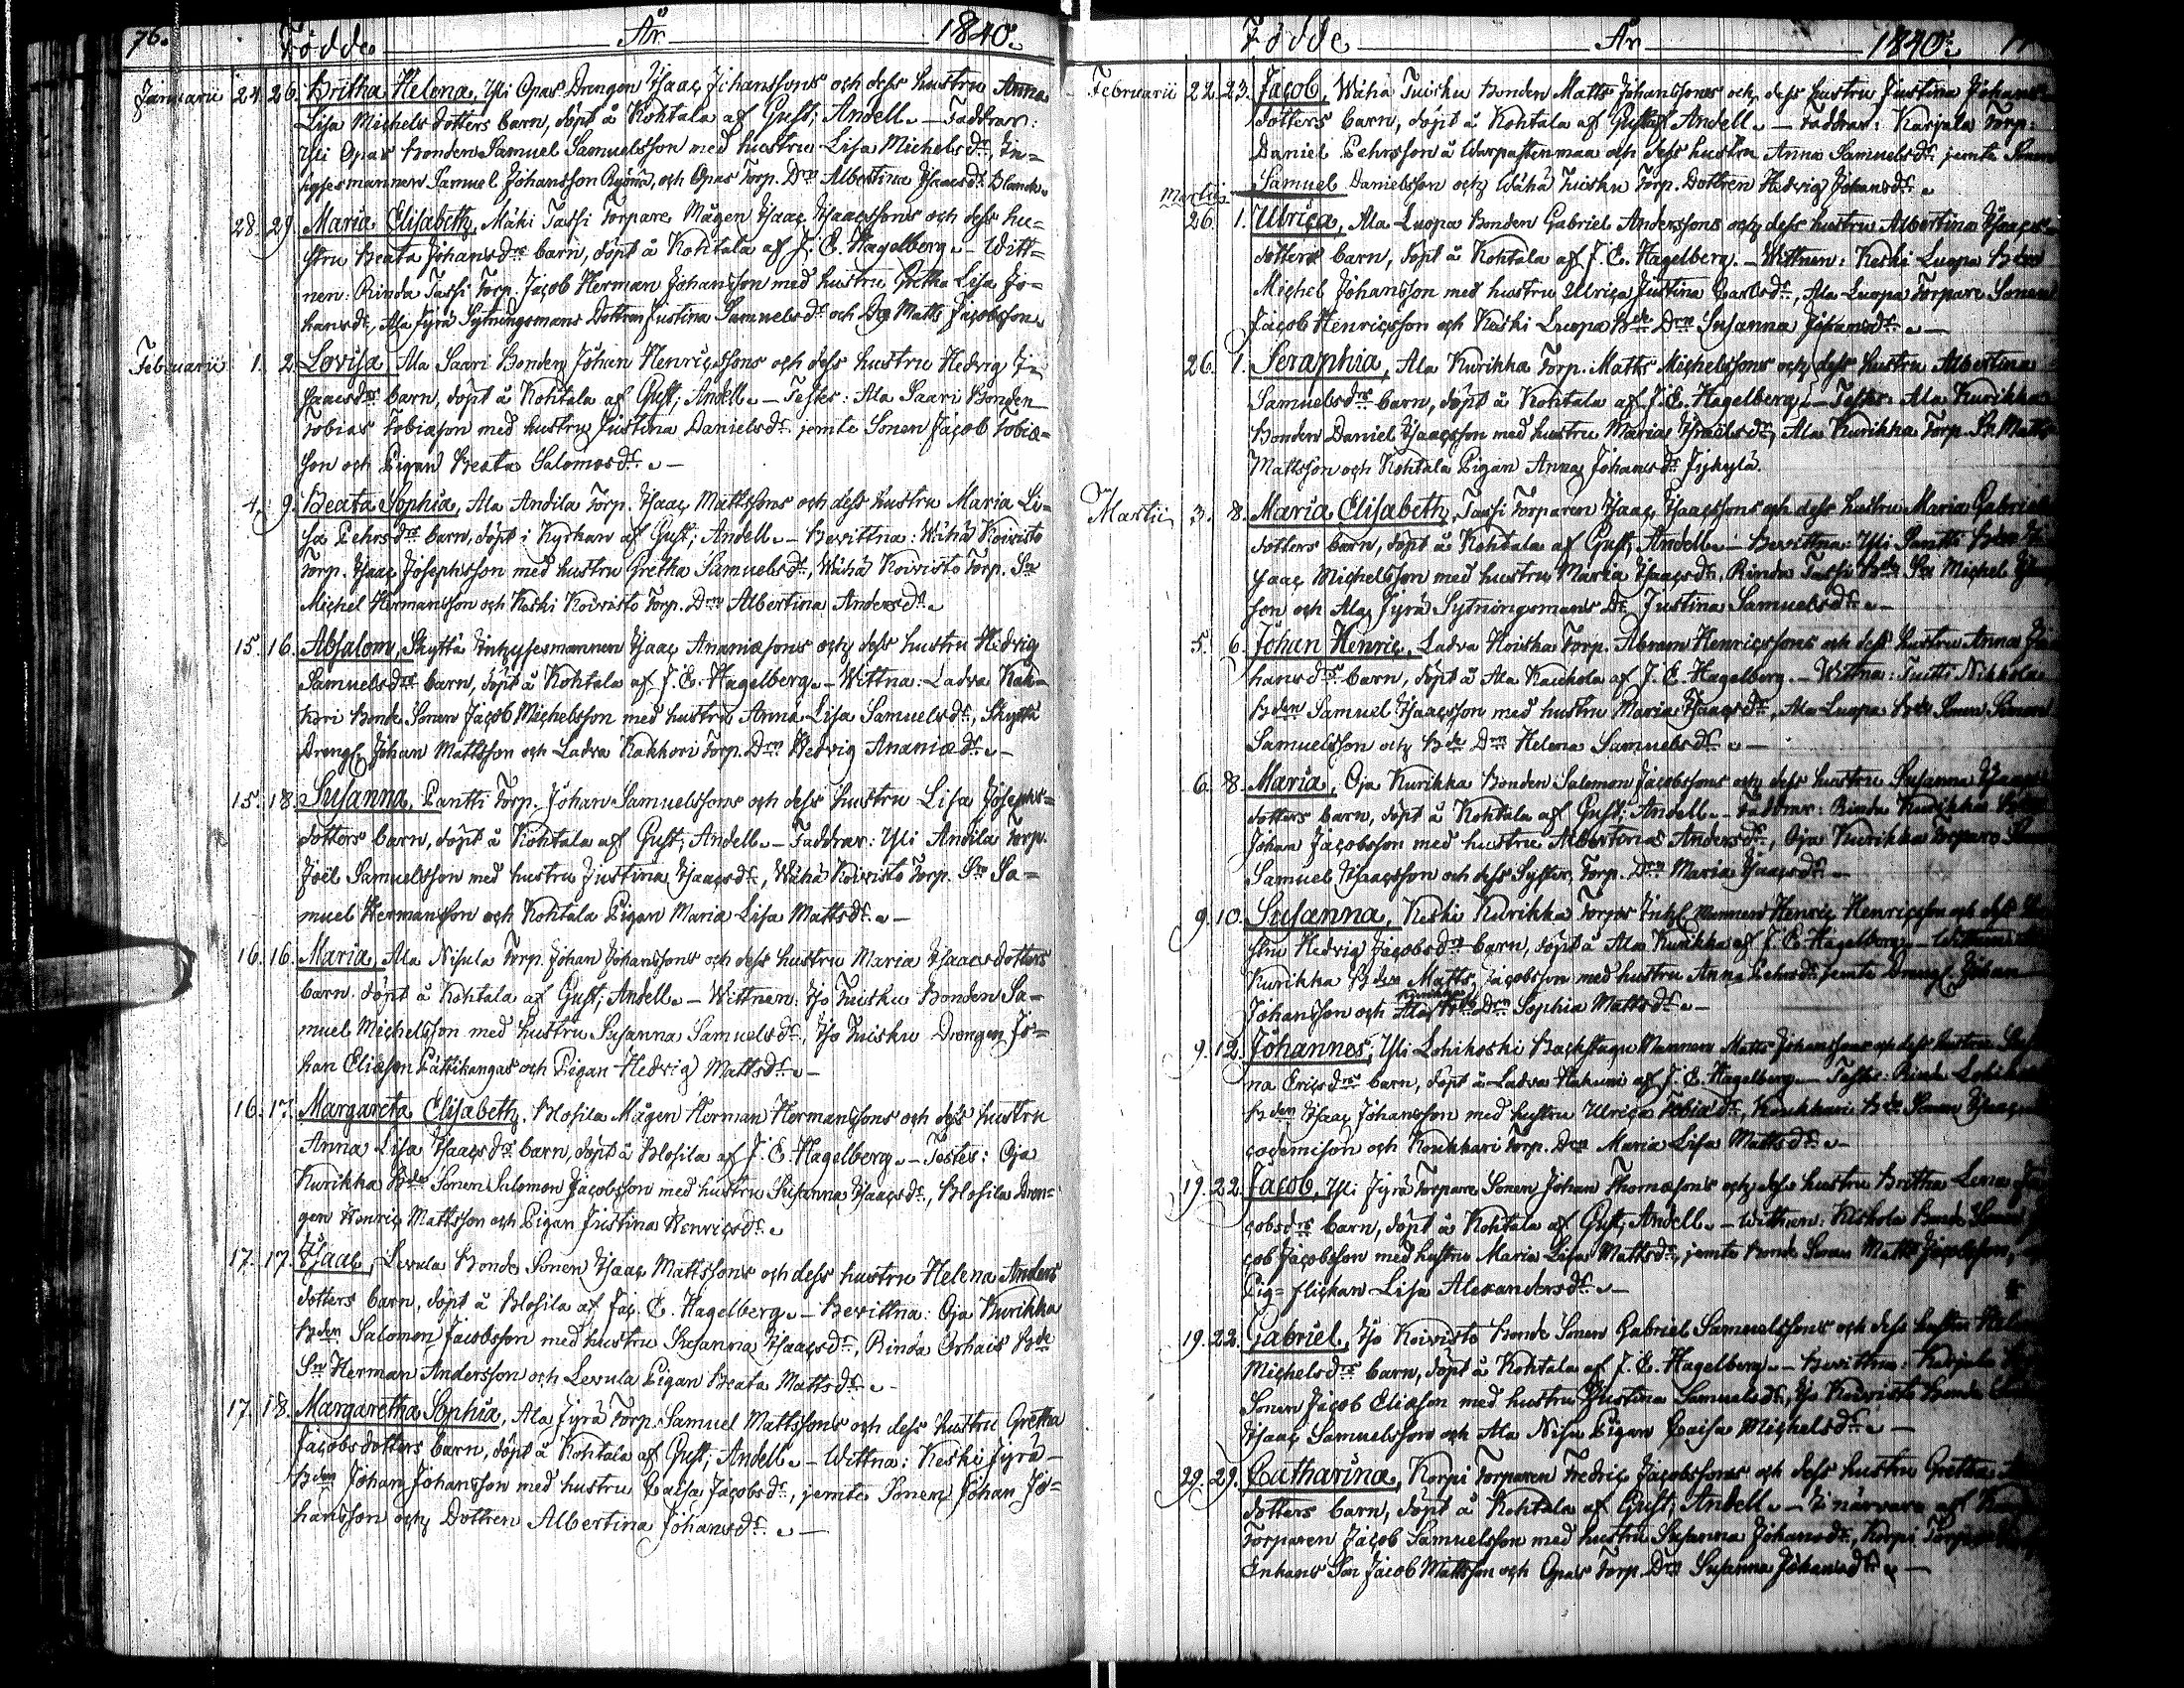 76. Födde År 1840.
Januarii 24. 26. Britha Helena, Yli Opas Drengen Isaac Johanssons och dess hustru Anna
Lisa Michels dotters barn, döpt å Kohtala af Gust; Andell. — Faddrar:
Yli Opas Bonden Samuel Samuelsson med hustru Lisa Michelsdr, In=
hysesmannen Samuel Johansson och Opas Torp. Drn Albertina Isaacsdr
28. 29. Maria Elisabeth, Mäki Tassi Torpare Mågen Isaac Isaacssons och dess hu=
stru Beata Johansdrs barn, döpt å Kohtala af J. E. Hagelberg. — Witt=
nen: Rinda Tassi Torp. Jacob Herman Johansson med hustru Gretha Lisa Jo=
hansdr, Ala Jyrä Sytningsmans Dottren Justina Samuelsdr och Matts Jacobsson.
Februarii 1. 2. Lovisa, Ala Saari Bonden Johan Henricssons och dess hustru Hedvig I=
saacsdrs barn, döpt å Kohtala af Gust; Andell. — Testes: Ala Saari Bonden
Tobias Tobiæson med hustru Justina Danielsdr jemte Sonen Jacob Tobiæ=
son och Pigan Beata Salomosdr. —
4. 9. Beata Sophia, Ala Andila Torp. Isaac Mattssons och dess hustru Maria Li=
sa Pehrsdrs barn, döpt i Kyrkan af Gust; Andell. — Bevittna: Wähä Koivisto
Torp. Isaac Josephsson med hustru Gretha Samuelsdr, Wähä Koivisto Torp. Sn
Michel Hermansson och Keski Koivisto Torp. Drn Albertina Andersdr.
15. 16. Absalom, Skyttä Inhysesmannen Isaac Ananiæsons och dess hustru Hedvig
Samuelsdrs barn, döpt å Kohtala af J. E. Hagelberg. — Wittna: Ladva Kak=
kori Bonde Sonen Jacob Michelsson med hustru Anna Lisa Samuelsdr, Skyttä
Drengs. Johan Mattsson och Ladva Kakkori Torp. Drn Hedvig Ananiædr. —
15. 18. Susanna, Pantti Torp. Johan Samuelssons och dess hustru Lisa Josephs=
dotters barn, döpt å Kohtala af Gust; Andell. — Faddrar: Yli Andila Torp.
Joël Samuelsson med hustru Justina Isaacsdr, Wähä Koivisto Torp. Sn Sa=
muel Hermansson och Kohtala Pigan Maria Lisa Mattsdr. —
16. 16. Maria, Ala Nisula Torp. Johan Johanssons och dess hustru Maria Isaacsdotters
barn. döpt å Kohtala af Gust; Andell. — Wittnen: Iso Tuisku Bonden Sa=
muel Michelsson med hustru Susanna Samuelsdr, Iso Tuisku Drengen Jo=
han Eliæson Pättikangas och Pigan Hedvig Mattsdr. —
16. 17. Margareta Elisabeth. Blosila Mågen Herman Hermanssons och dess hustru
Anna Lisa Isaacsdrs barn, döpt å Blosila af J. E. Hagelberg. — Testes: Oja
Kurikka Bde Sonen Salomon Jacobsson med hustru Susanna Isaacsdr, Blosila Dren=
gen Henric Mattsson och Pigan Justina Henricsdr.
17. 17. Isaac, Levula Bonde Sonen Isaac Mattssons och dess hustru Helena Anders
dotters barn, döpt å Blosila af Jac. E. Hagelberg. — Bevittna: Oja Kurikka
Bden Salomon Jacobsson med hustru Susanna Isaacsdr, Rinda Orhais Bde
Sn Herman Andersson och Levula Pigan Beata Mattsdr. —
17. 18. Margaretha Sophia, Ala Jyrä Torp. Samuel Mattssons och dess hustru Gretha
Jacobsdotters barn, döpt å Kohtala af Gust; Andell. — Wittna: Keski Jyrä
Bden Johan Johansson med hustru Caisa Jacobsdr, jemte Sonen Johan Jo=
hansson och Dottren Albertina Johansdr. —
Födde År 1840.
Februarii 22. 23. Jacob, Wähä Tuisku Bonden Matts Johanssons och dess hustru Justina Johans=
dotters barn, döpt å Kohtala af Gustaf Andell. — Faddrar: Karjala Torp.
Daniel Pehrsson å Warpastenmaa och dess hustru Anna Samuelsdr jemte Sonen
Samuel Danielsson och Wähä Tuisku Torp. Dottren Hedvig Johansdr.
Martii
26. 1. Ulrica, Ala Luopa Bonden Gabriel Anderssons och dess hustru Albertina Isaacs=
dotters barn, döpt å Kohtala af J. E. Hagelberg. — Wittnen: Keski Luopa Bden
Michel Johansson med hustru Ulrica Justina Carlsdr, Ala Luopa Torpare Sonen
Jacob Henricsson och Keski Luopa Bde Drn Susanna Johansdr. —
26. 1. Seraphia, Ala Kurikka Torp. Matts Michelssons och dess hustru Albertina
Samuelsdrs barn, döpt å Kohtala af J. E. Hagelberg. — Testes: Ala Kurikka
Bonden Daniel Isaacsson med hustru Maria Israelsdr, Ala Kurikka Torp. Sn Matts
Mattsson och Kohtala Pigan Anna Johansdr Jyhylä.
Martii 3. 8. Maria Elisabeth, Tassi Torparen Isaac Isaacssons och dess hustru Maria Gabriels
dotters barn, döpt å Kohtala af Gust; Andell. — Bevittna: Yli Pantti Bden
saac Michelsson med hustru Maria Isaacsdr, Rinda Tassi Bde Sn Michel
son och Ala Jyrä Sytningsmans Dr Justina Samuelsdr. —
5. 6. Johan Henric, Ladva Koiska Torp. Abram Henricssons och dess hustru Anna Jo
hansdrs barn, döpt å Ala Kauhola af J. E. Hagelberg. — Wittna: Tuitti Nikkola
Bden Samuel Isaacsson med hustru Maria Isaacsdr, Ala Luopa Bde Sonen
Samuelsson och Bde Drn Helena Samuelsdr. —
6. 8. Maria, Oja Kurikka Bonden Salomon Jacobssons och dess hustru Susanna Isaacs
dotters barn, döpt å Kohtala af Gust; Andell. — Faddrar: Rinda Kurikka
Johan Jacobsson med hustru Albertina Andersdr, Oja Kurikka Torpare
Samuel Isaacsson och dess Syster, Torp. Drn Maria Isaacsdr. —
9. 10. Susanna, Keski Kurikka Torps Inhys Mannen Henric Henricsson och dess
stru Hedvig Jacobsdrs barn, döpt å Ala Kurikka af J. E. Hagelberg. —
Kurikka Bden Matts Jacobsson med hustru Anna Pehrsdr, jemte Drengs. Johan
Johansson och Ala Kurikka Drn Sophia Mattsdr. —
9. 12. Johannes, Yli Lohikoski Backstugu Mannen Matts Johanssons och dess hustru
na Ericsdrs barn, döpt å Ladva Hakuni af J. E. Hagelberg. — Testes: Rinda
Bden Isaac Johansson med hustru Ulrica Tobiædr, Koukkari Bde Sonen Isaac
och Koukkari Torp. Drn Maria Lisa Mattsdr. —
19. 22. Jacob, Yli Jyrä Torpare Sonen Johan Thomæsons och dess hustru Britha Lena
cobsdrs barn, döpt å Kohtala af Gust; Andell. — Wittnen: Kiskola Bonde
cob Jacobsson med hustru Maria Lisa Mattsdr, jemte Bonde Sonen Matts Jacobsson,
Pig= flickan Lisa Alexandersdr. —
19. 22. Gabriel, Iso Koivisto Bonde Sonen Gabriel Samuelssons och dess hustru
Michelsdrs barn, döpt å Kohtala af J. E. Hagelberg. — Bevittna: Karjala
Sonen Jacob Eliæson med hustru Justina Samuelsdr, Iso Koivisto Bonde
Isaac Samuelsson och Ala Nisu Pigan Caisa Michelsdr. —
29. 29. Catharina, Korpi Torparen Fredric Jacobssons och dess hustru Gretha
dotters barn, döpt å Kohtala af Gust; Andell. — I närvaro af
Torparen Jacob Samuelsson med hustru Susanna Johansdr, Korpi
Enkans Son Jacob Mattsson och Opas Torp. Drn Susanna Johansdr. —